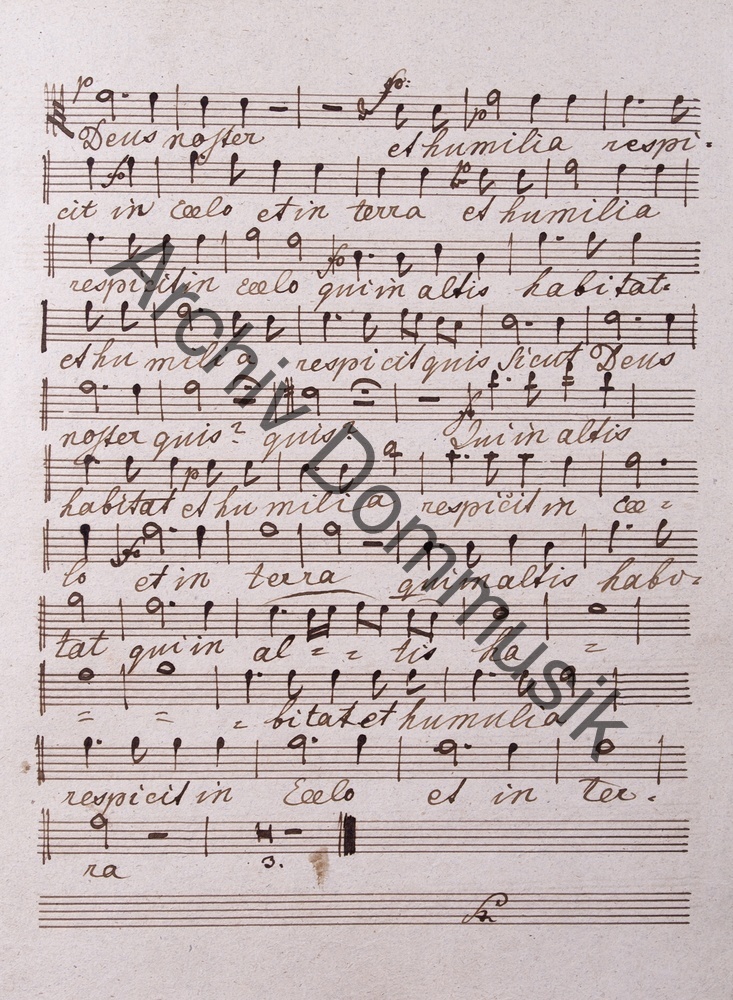 p fo:
p
Deus noster et humilia respi-
fo p
cit in Coelo et in terra et humilia
fo
respicit in coelo qui in altis habitat
et humilia respicit quis sicut Deus
fo
noster quis? quis? Qui in altis
p
habitat et humilia respicit in coe=
fo
lo et in terra qui in altis habi=
tat qui in al = = tis ha =
= = = bitat et humulia
respicit in Coelo et in ter=
ra 3.
Archiv Dommusik